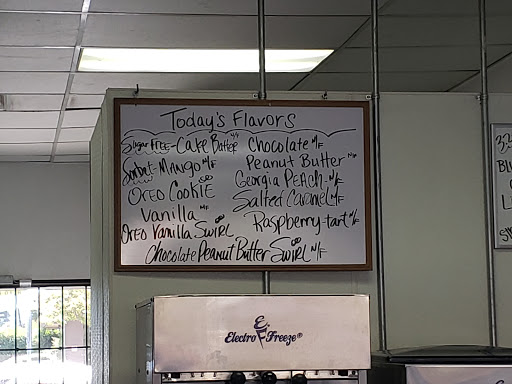 Today's Flavors
Sugar FREE-Cake Batter N/F
Sorbet-Mango N/F
Oreo Cookie
Vanilla N/F
Oreo Vanilla Swirl
Chocolate N/F
Peanut Butter N/F
Georgia Peach N/F
Salted Caramel N/F
Raspberry-tart N/F
Chocolate Peanut Butter Swirl N/F
Electro Freeze®